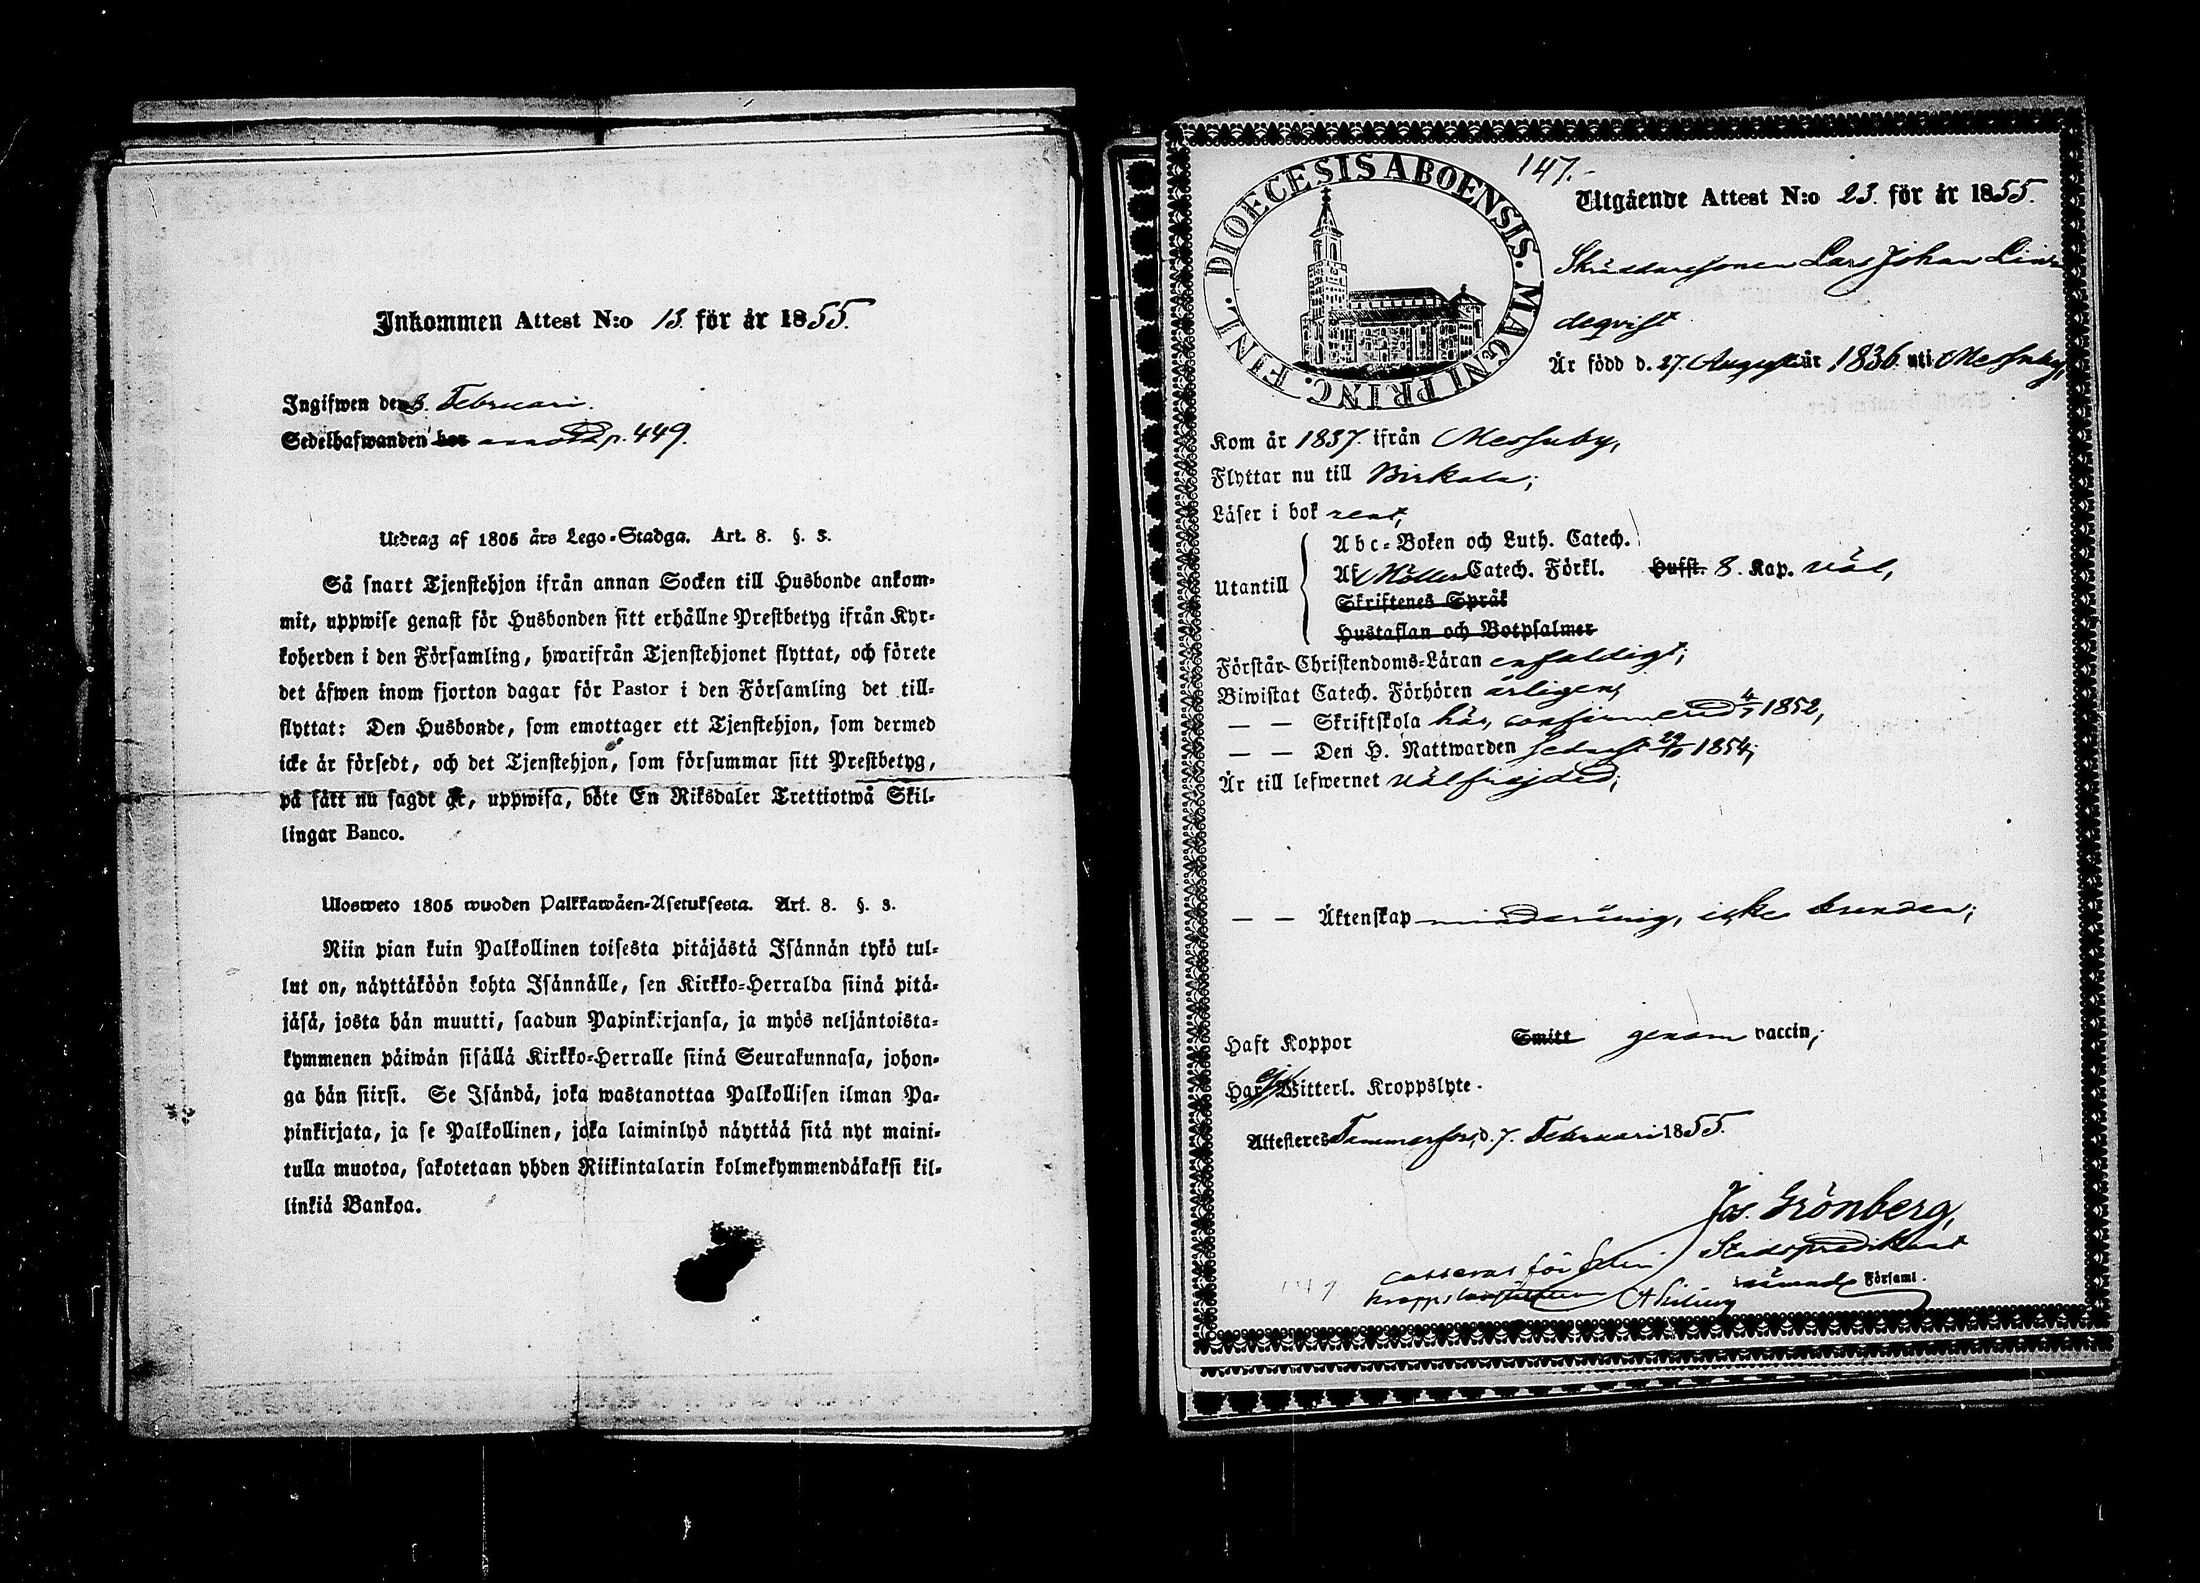 Inkommen Attest N:o 13. för år 1855.
Ingifwen den 8. Februari.
Sedelhafwanden hos p. 449.
Utdrag af 1805 års Lego-Stadga. Art. 8. §. 3.
Så snart Tjenstehjon ifrån annan Socken till Husbonde ankom-
mit, uppwise genast för Husbonden sitt erhållne Prestbetyg ifrån Kyr-
koherden i den Församling, hwarifrån Tjenstehjonet flyttat, och förete
det äfwen inom fjorton dagar för Pastor i den Församling det till-
flyttat: Den Husbonde, som emottager ett Tjenstehjon, som dermed
icke är försedt, och det Tjenstehjon, som försummar sitt Prestbetyg,
på sätt nu sagdt är, uppwisa, böte En Riksdaler Trettiotwå Skil-
lingar Banco.
Ulosweto 1805 wuoden Palkkawäen-Asetuksesta. Art. 8. §. 3.
Niin pian kuin Palkollinen toisesta pitäjästä Isännän tykö tul-
lut on, näyttäköön kohta Isännälle, sen Kirkko-Herralda siinä pitä-
jäsä, josta hän muutti, saadun Papinkirjansa, ja myös neljäntoista-
kymmenen päiwän sisällä Kirkko-Herralle siinä Seurakunnasa, johon-
ga hän siirsi. Se Isändä, joka wastanottaa Palkollisen ilman Pa-
pinkirjata, ja se Palkollinen, joka laiminlyö näyttää sitä nyt maini-
tulla muotoa, sakotetaan yhden Riikintalarin kolmekymmendäkaksi kil-
linkiä Bankoa.
147.-
DIOECESIS ABOENSIS. MAGNI PRINC. FINL.
Utgående Attest N:o 23. för år 1855.
Skräddaresonen Lars Johan Lin-
deqvist
Är född d. 27. Augusti år 1836. uti Messuby,
Kom år 1837. ifrån Messuby,
Flyttar nu till Birkala;
Läser i bok rent,
Abc-Boken och Luth. Catech.
Utantill
Af Möllers Catech. Förkl. Hufst. 8. Kap. väl,
Skriftenes Språk
Hustaflan och Botpsalmer
Förstår Christendoms-Läran enfaldigt;
Biwistat Catech. Förhören årligen,
— — Skriftskola här, confirmerad 4/7 1852,
— — Den H. Nattwarden sednast 29/10 1854;
Är till lefwernet välfrejdad;
— — Äktenskap minderårig, icke
Haft Koppor Smitt genom vaccin;
Har ej Witterl. Kroppslyte.
Attesteres Tammerfors, d. 7. Februari 1855.
Jos. Grönberg,
Stadspredikant
casseras för sin
Församl.